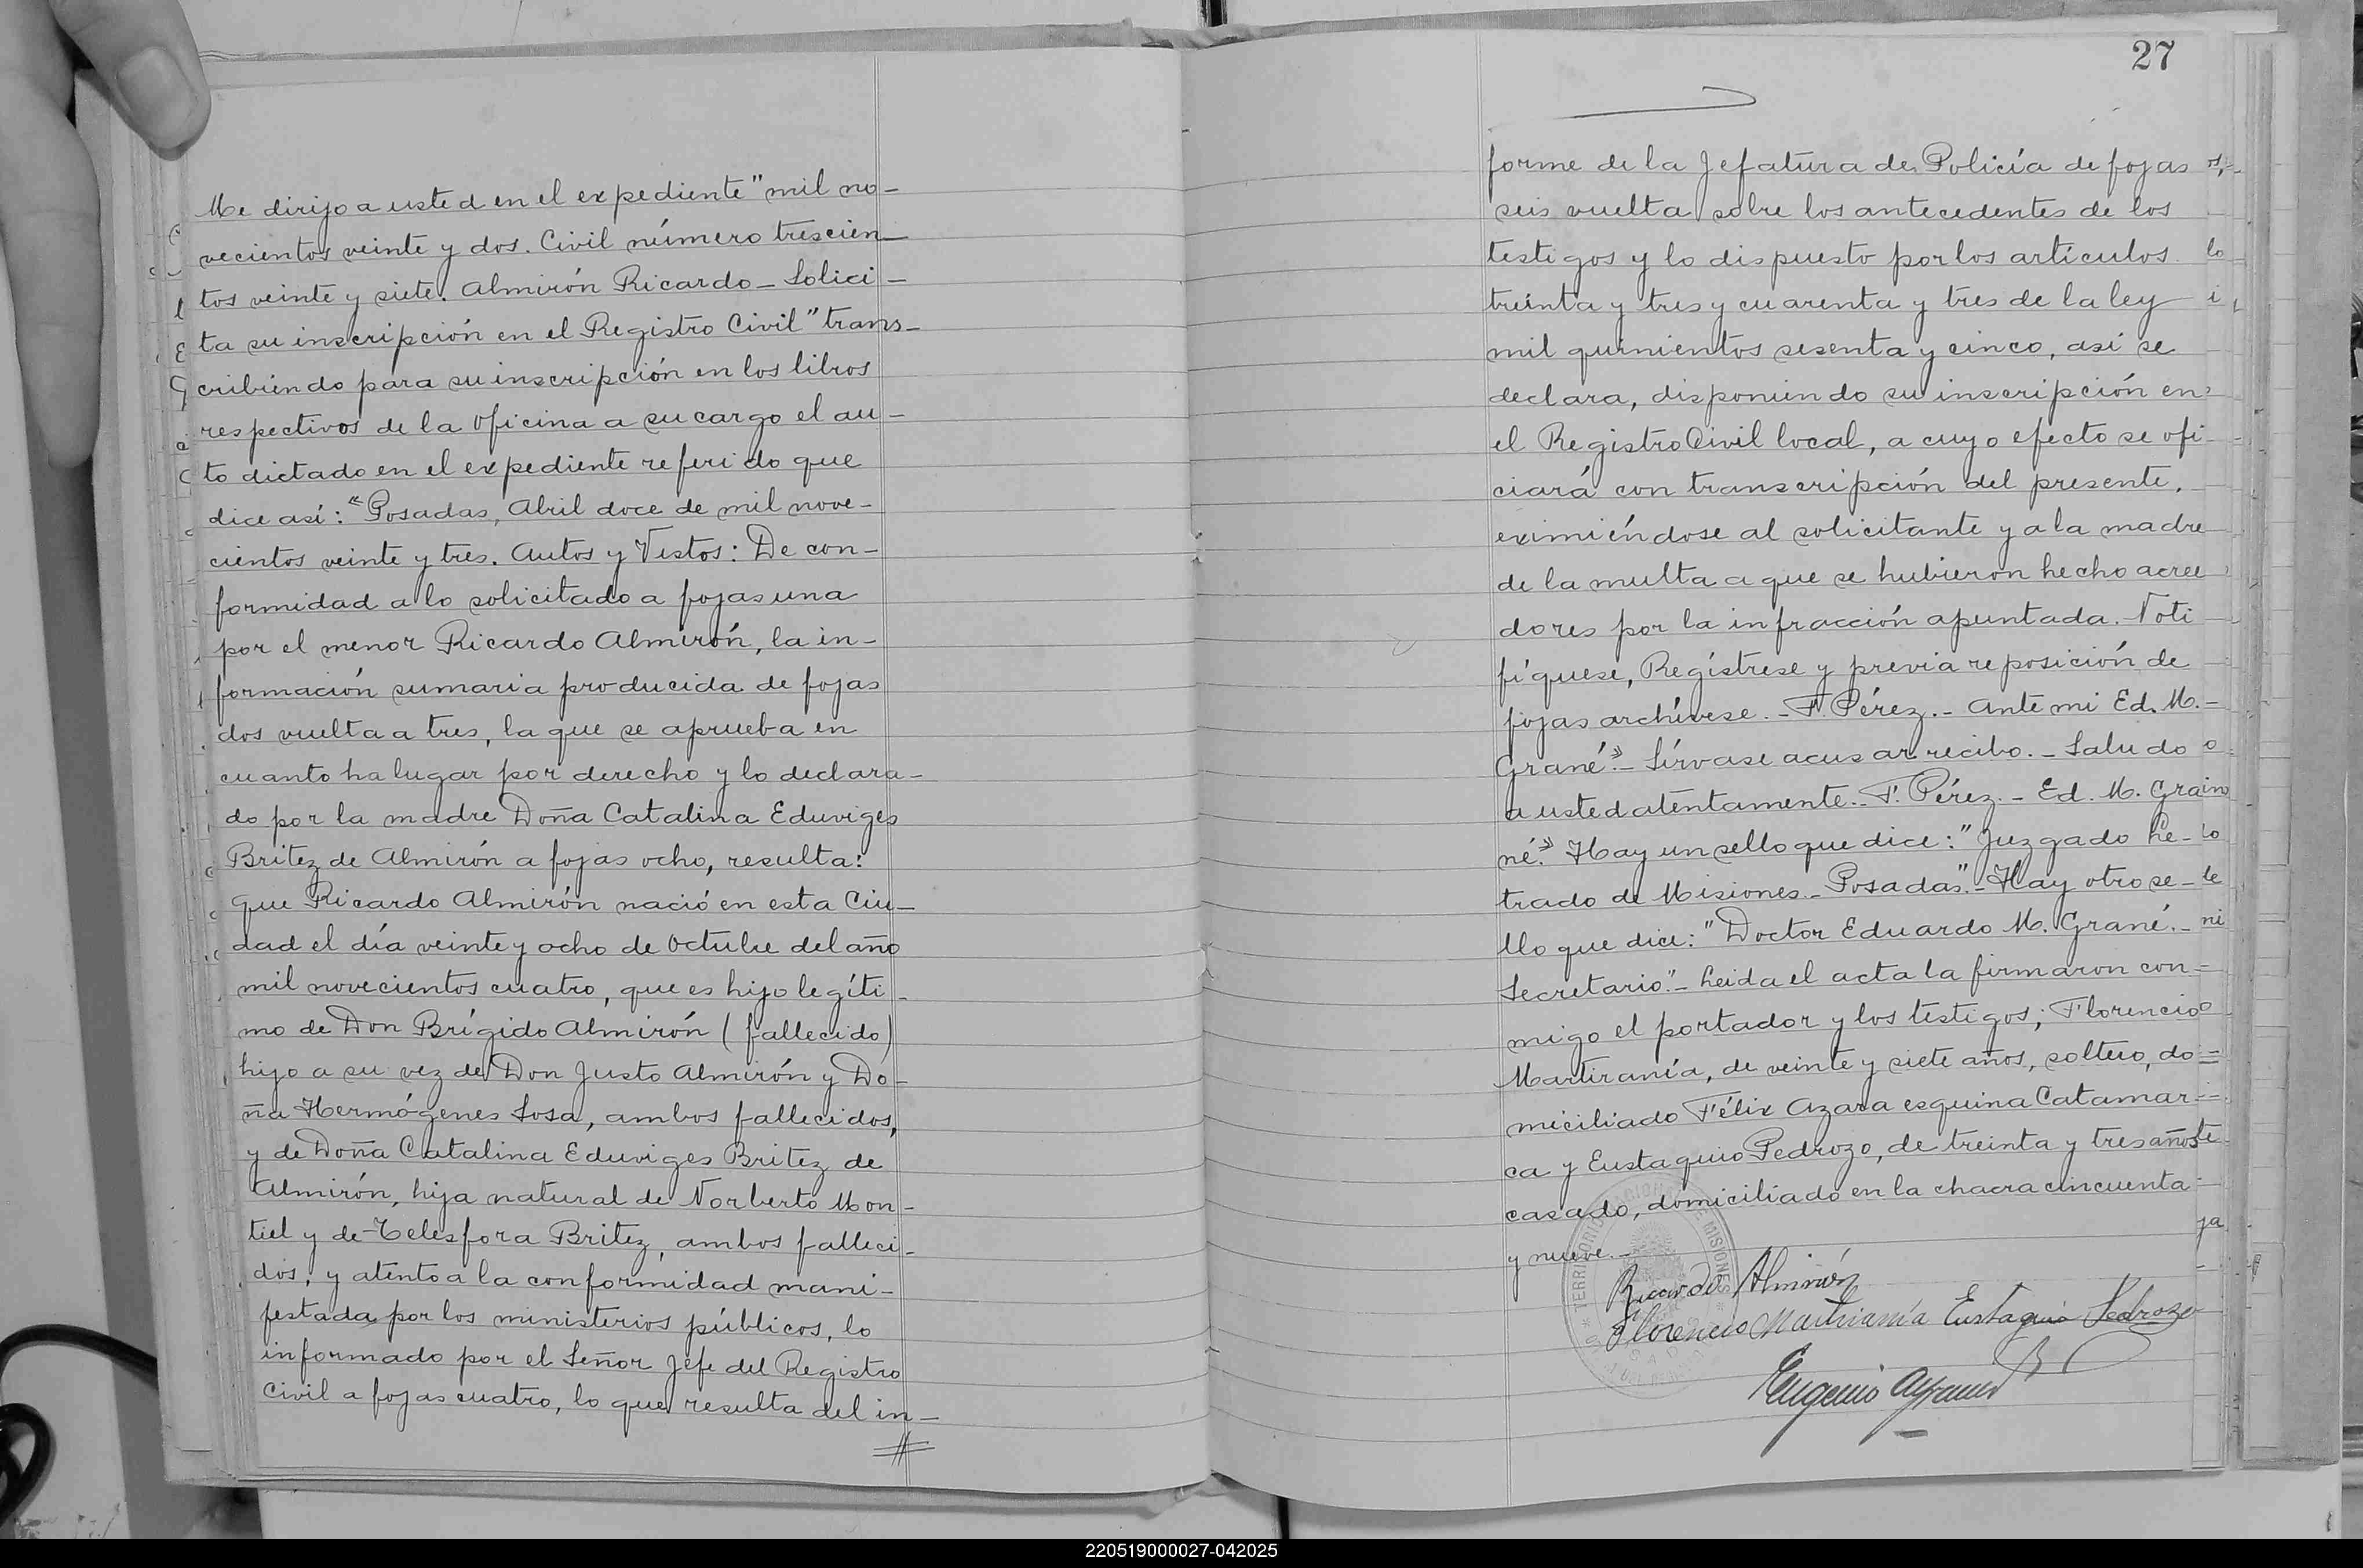 Me dirijo a usted en el expediente "mil no-
vecientos veinte y dos. Civil número trescien-
tos veinte y siete. Almirón Ricardo - Solici-
ta su inscripción en el Registro Civil" trans-
cribiendo para su inscripción en los libros
respectivos de la Oficina a su cargo el au-
to dictado en el expediente referido que
dice así: "Posadas, Abril doce de mil nove-
cientos veinte y tres. Autos y Vistos: De con-
formidad a lo solicitado a fojas una
por el menor Ricardo Almirón, la in-
formación sumaria producida de fojas
dos vuelta a tres, la que se aprueba en
cuanto ha lugar por derecho y lo declara-
do por la madre Doña Catalina Eduviges
Britez de Almirón a fojas ocho, resulta:
que Ricardo Almirón nació en esta Ciu-
dad el día veinte y ocho de Octubre del año
mil novecientos cuatro, que es hijo legíti-
mo de Don Brígido Almirón (fallecido)
hijo a su vez de Don Justo Almirón y Do-
ña Hermógenes Sosa, ambos fallecidos,
y de Doña Catalina Eduviges Britez de
Almirón, hija natural de Norberto Mon-
tiel y de Telesfora Britez, ambos falleci-
dos; y atento a la conformidad mani-
festada por los ministerios públicos, lo
informado por el Señor Jefe del Registro
Civil a fojas cuatro, lo que resulta del in-
27
forme de la Jefatura de Policía de fojas
seis vuelta sobre los antecedentes de los
testigos y lo dispuesto por los artículos
treinta y tres y cuarenta y tres de la ley
mil quinientos sesenta y cinco, así se
declara, disponiendo su inscripción en
el Registro Civil local, a cuyo efecto se ofi-
ciará con transcripción del presente,
eximiéndose al solicitante y a la madre
de la multa a que se hubieron hecho acree
dores por la infracción apuntada. Noti
fíquese, Regístrese y previa reposición de
fojas archívese. - F. Pérez. - Ante mi Ed. M. -
Grané". - Sírvase acusar recibo. - Saludo
a usted atentamente. - F. Pérez. - Ed. M. Gra
né". Hay un sello que dice: "Juzgado Le-
trado de Misiones - Posadas". - Hay otro se-
llo que dice: "Doctor Eduardo M. Grané. -
Secretario". - Leida el acta la firmaron con-
migo el portador y los testigos; Florencio
Martiranía, de veinte y siete años, soltero, do-
miciliado Félix Azara esquina Catamar-
ca y Eustaquio Pedrozo, de treinta y tres años
casado, domiciliado en la chacra cincuenta
y nueve. -
Ricardo Almirón
Florencio Martiranía Eustaquio Pedrozo
Eugenio
220519000027-042025